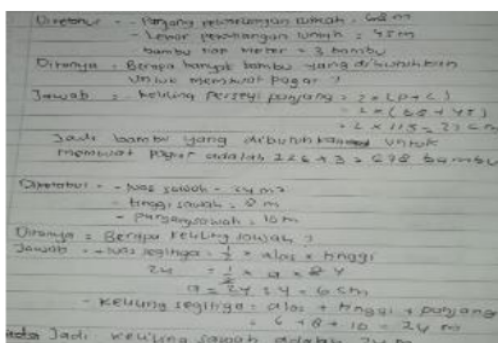 Diketahui : - Panjang pekarangan rumah = 68 m
- Lebar pekarangan rumah = 45 m
bambu tiap meter = 3 bambu
Ditanya : Berapa banyak bambu yang dibutuhkan
untuk membuat pagar ?
Jawab : Keliling persegi panjang = 2 x (P + L)
= 2 x (68 + 45)
= 2 x 113 =
Jadi bambu yang dibutuhkan untuk
membuat pagar adalah 226 + 3 = 678 bambu
Diketahui : - luas sawah = 24 m2
- tinggi sawah = 8 m
- panjang sawah = 10 m
Ditanya = Berapa keliling sawah ?
Jawab = - luas segitiga = 1/2 x alas x tinggi
24 = 1/2 x a x 8 4
a = 24 : 4 = 6 cm
- keliling segitiga = alas + tinggi + panjang
= 6 + 8 + 10 = 24 m
Jadi keliling sawah adalah 24 m